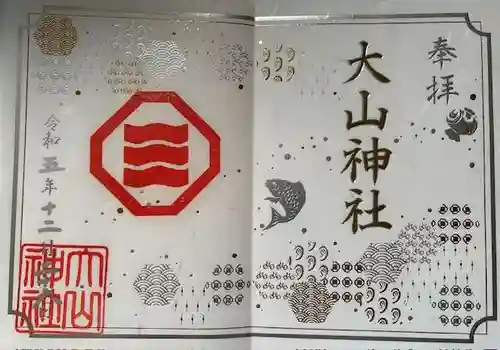 奉拝
大山神社
令和五年十二月
大山神社